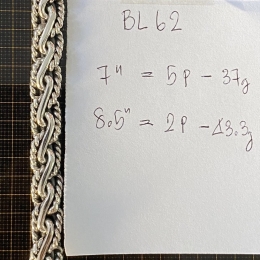 BL62
7" = 5p - 37g
8.5" = 2p - 43.3g